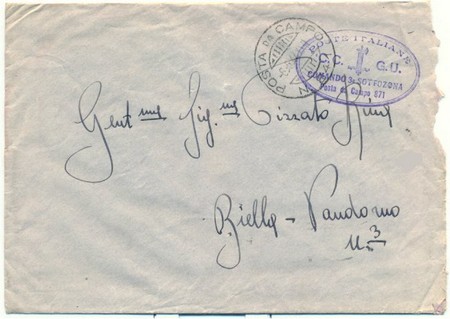 POSTA DA CAMPO
POSTE ITALIANE
C.C. G.U.
COMANDO 3ª SOTTOZONA
Posta da Campo 871
Gent.ma Sig.na
Biella - Vandorno
N. 3